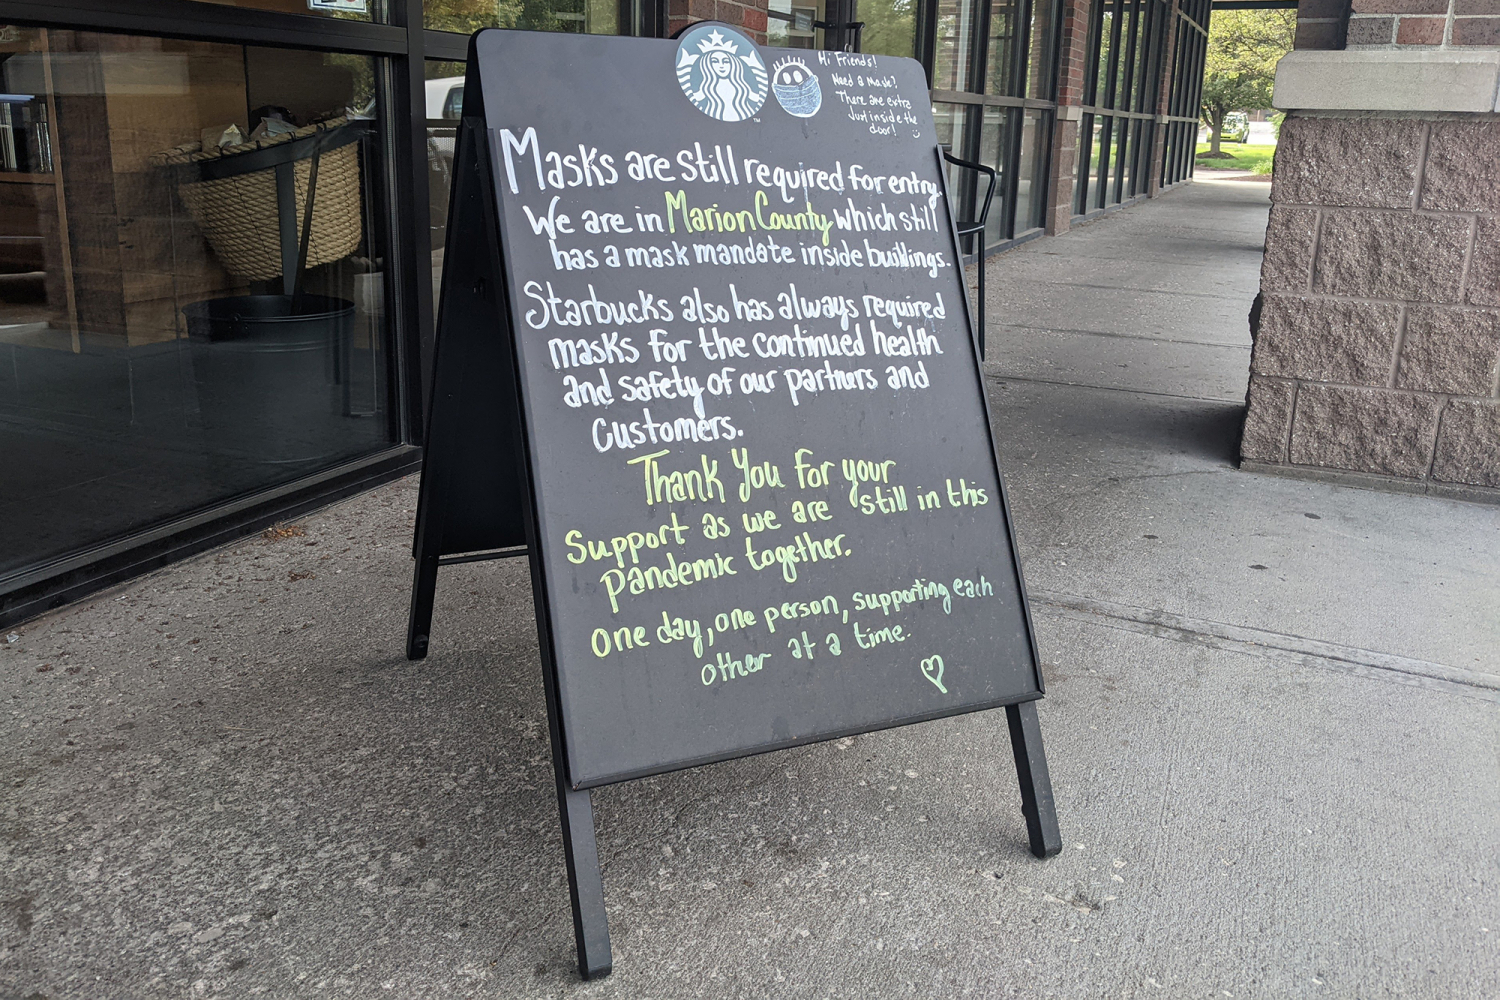 Hi Friends!
Need a mask?
There are extra
Just inside the
door!
TM
Masks are still required for entry.
We are in Marion County which still
has a mask mandate inside buildings.
Starbucks also has always required
masks for the continued health
and safety of our partners and
Customers.
Thank You for your
Support as we are still in this
pandemic together.
One day, one person, supporting each
other at a time.